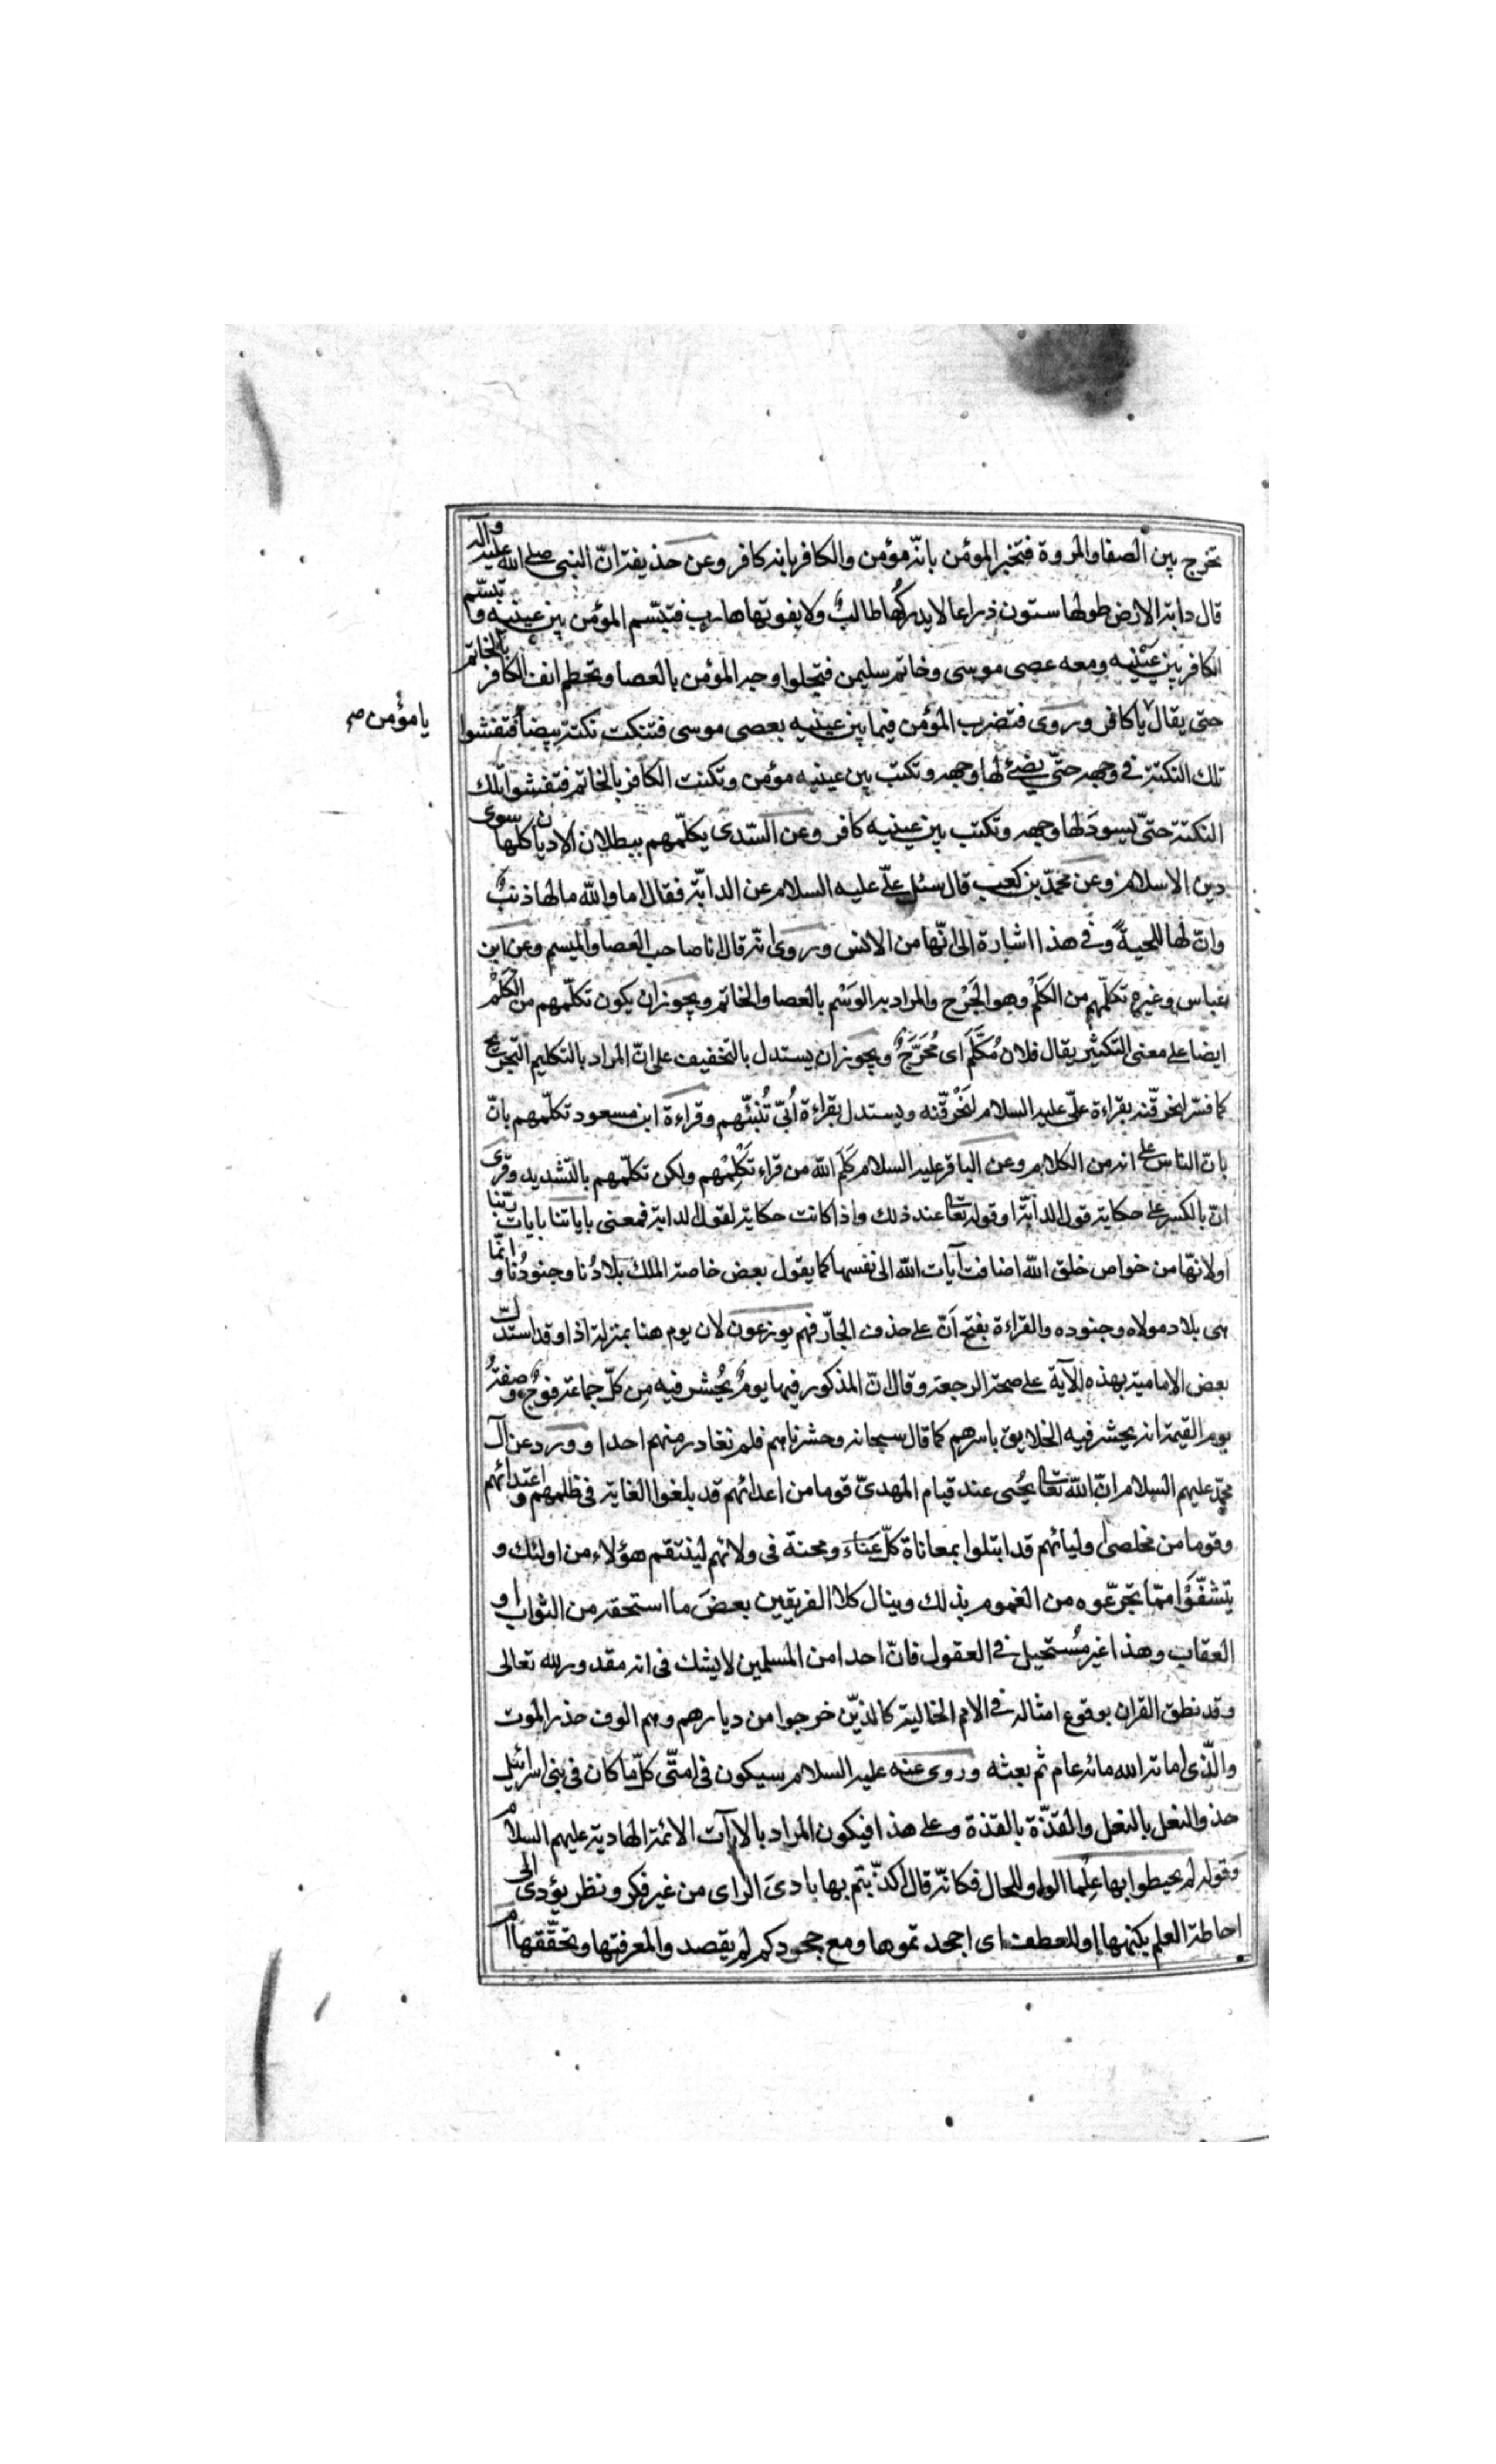 تخرج بين الصفا والمروة فتخبر المؤمن بانّه مؤمن والكافر بانه كافر وعن حذيفة انّ النبى صلى الله عليه وآله
قال دابة الارض طولها ستون ذراعا لا يدركُها طالبٌ ولا يفوتها هارب فتبسّم المؤمن بين عينيه وتبسّم
الكافر بين عينيه ومعه عصى موسى وخاتم سليمن فتجلوا وجه المؤمن بالعصا وتحطم انف الكافر بالخاتم
حتى يقال يا كافر وروى فتضرب المؤمن فيما بين عينيه بعصى موسى فتنكت نكتة بيضا فتفشوا
يا مؤمن صح
تلك النكتة فى وجهه حتّى يضئ لها وجهه وتكتب بين عينيه مؤمن وتكنت الكافر بالخاتم فتفشوا تلك
النكتة حتىّ يسودّ لها وجهه وتكتب بين عينيه كافر وعن السّدى يكلّمهم ببطلان الاديان كلها سوى
دين الاسلام وعن محمّد بن كعب قال سئل علىّ عليه السلام عن الدابّة فقال اما والله ما لها ذنبٌ
وانّ لها للحيةً وفى هذا اشارة الى انّها من الانس وروى انّه قال انا صاحب العصا والميسم وعن ابن
عباس وغيره تكلّمهم من الكَلْم وهو الجَرْح والمراد به الوَسْم بالعصا والخاتم ويجوز ان يكون تكلّمهم من الكَلْم
ايضا على معنى التكثير يقال فلان مُكَلَّم اى مُجَرَّحٌ ويجوز ان يستدل بالتخفيف على انّ المراد بالتكليم التجريح
كما فسّر لنحرقّنه بقراءة علىّ عليه السلام لنَحْرقّنه ويستدل بقراءة اُبىّ تُنَبّئهم وقراءة ابن مسعود تكلّمهم بانّ
بانّ الناس على انه من الكلام وعن الباقر عليه السلام كَلَم الله من قراء تَكْلِمُهم ولكن تكلّمهم بالتّشديد وقرئ
انّ بالكسر على حكاية قول الدابّة او قوله تعالى عند ذلك واذا كانت حكاية لقول الدابة فمعنى باياتنا بايات ربّنا
او لانّها من خواص خلق الله اضافت آيات الله الى نفسها كما يقول بعض خاصة الملك بلادُنا وجنودُنا وانّما
هى بلاد مولاه وجنوده والقراءة بفتح اَنّ على حذف الجارّ فهم يوزعون لان يوم هنا بمنزلة اذا وقد استدلّ
بعض الامامية بهذه الآية على صحة الرجعة وقال انّ المذكور فيها يومٌ يُحشر فيه مِن كلّ جماعة فوجٌ وصفةُ
يوم القيمة انه يحشر فيه الخلايق باسرهم كما قال سبحانه وحشرناهم فلم نغادر منهم احدا وورد عن آل
محمّد عليهم السلام انّ الله تعالى يُحيى عند قيام المهدىّ قوما من اعدائهم قد بلغوا الغاية فى ظلمهم واعتدائهم
وقوما من مخلصى اوليائهم قد ابتلوا بمعاناة كلّ عَناء ومحنة فى ولائهم لينتقم هؤلاء من اولئك و
يتشفّوا ممّا تجرّعوه من الغموم بذلك وينال كلا الفريقين بعضَ ما استحقه من الثواب او
العقاب وهذا غير مُستحيل فى العقول فانّ احدا من المسلمين لا يشك فى انه مقدور لله تعالى
وقد نطق القران بوقوع امثاله فى الامم الخالية كالذيّن خرجوا من ديارهم وهم الوف حذر الموت
والّذى اماته الله مائه عام ثم بعثه وروى عنه عليه السلام سيكون فى امتّى كلّ ما كان فى بنى اسرائيل
حذو النعل بالنعل والقذّة بالقذة وعلى هذا فيكون المراد بالآيات الائمة الهادية عليهم السلام
وقوله لم يحيطوا بها عِلْما الواو للحال فكانّه قال اكذّبتم بها بادىَ الراى من غير فكر ونظر يؤدى الى
احاطة العلم بكنهها او للعطف اى اجحدتموها ومع جحودكم لم يقصدوا لمعرفتها وتحقّقها ام